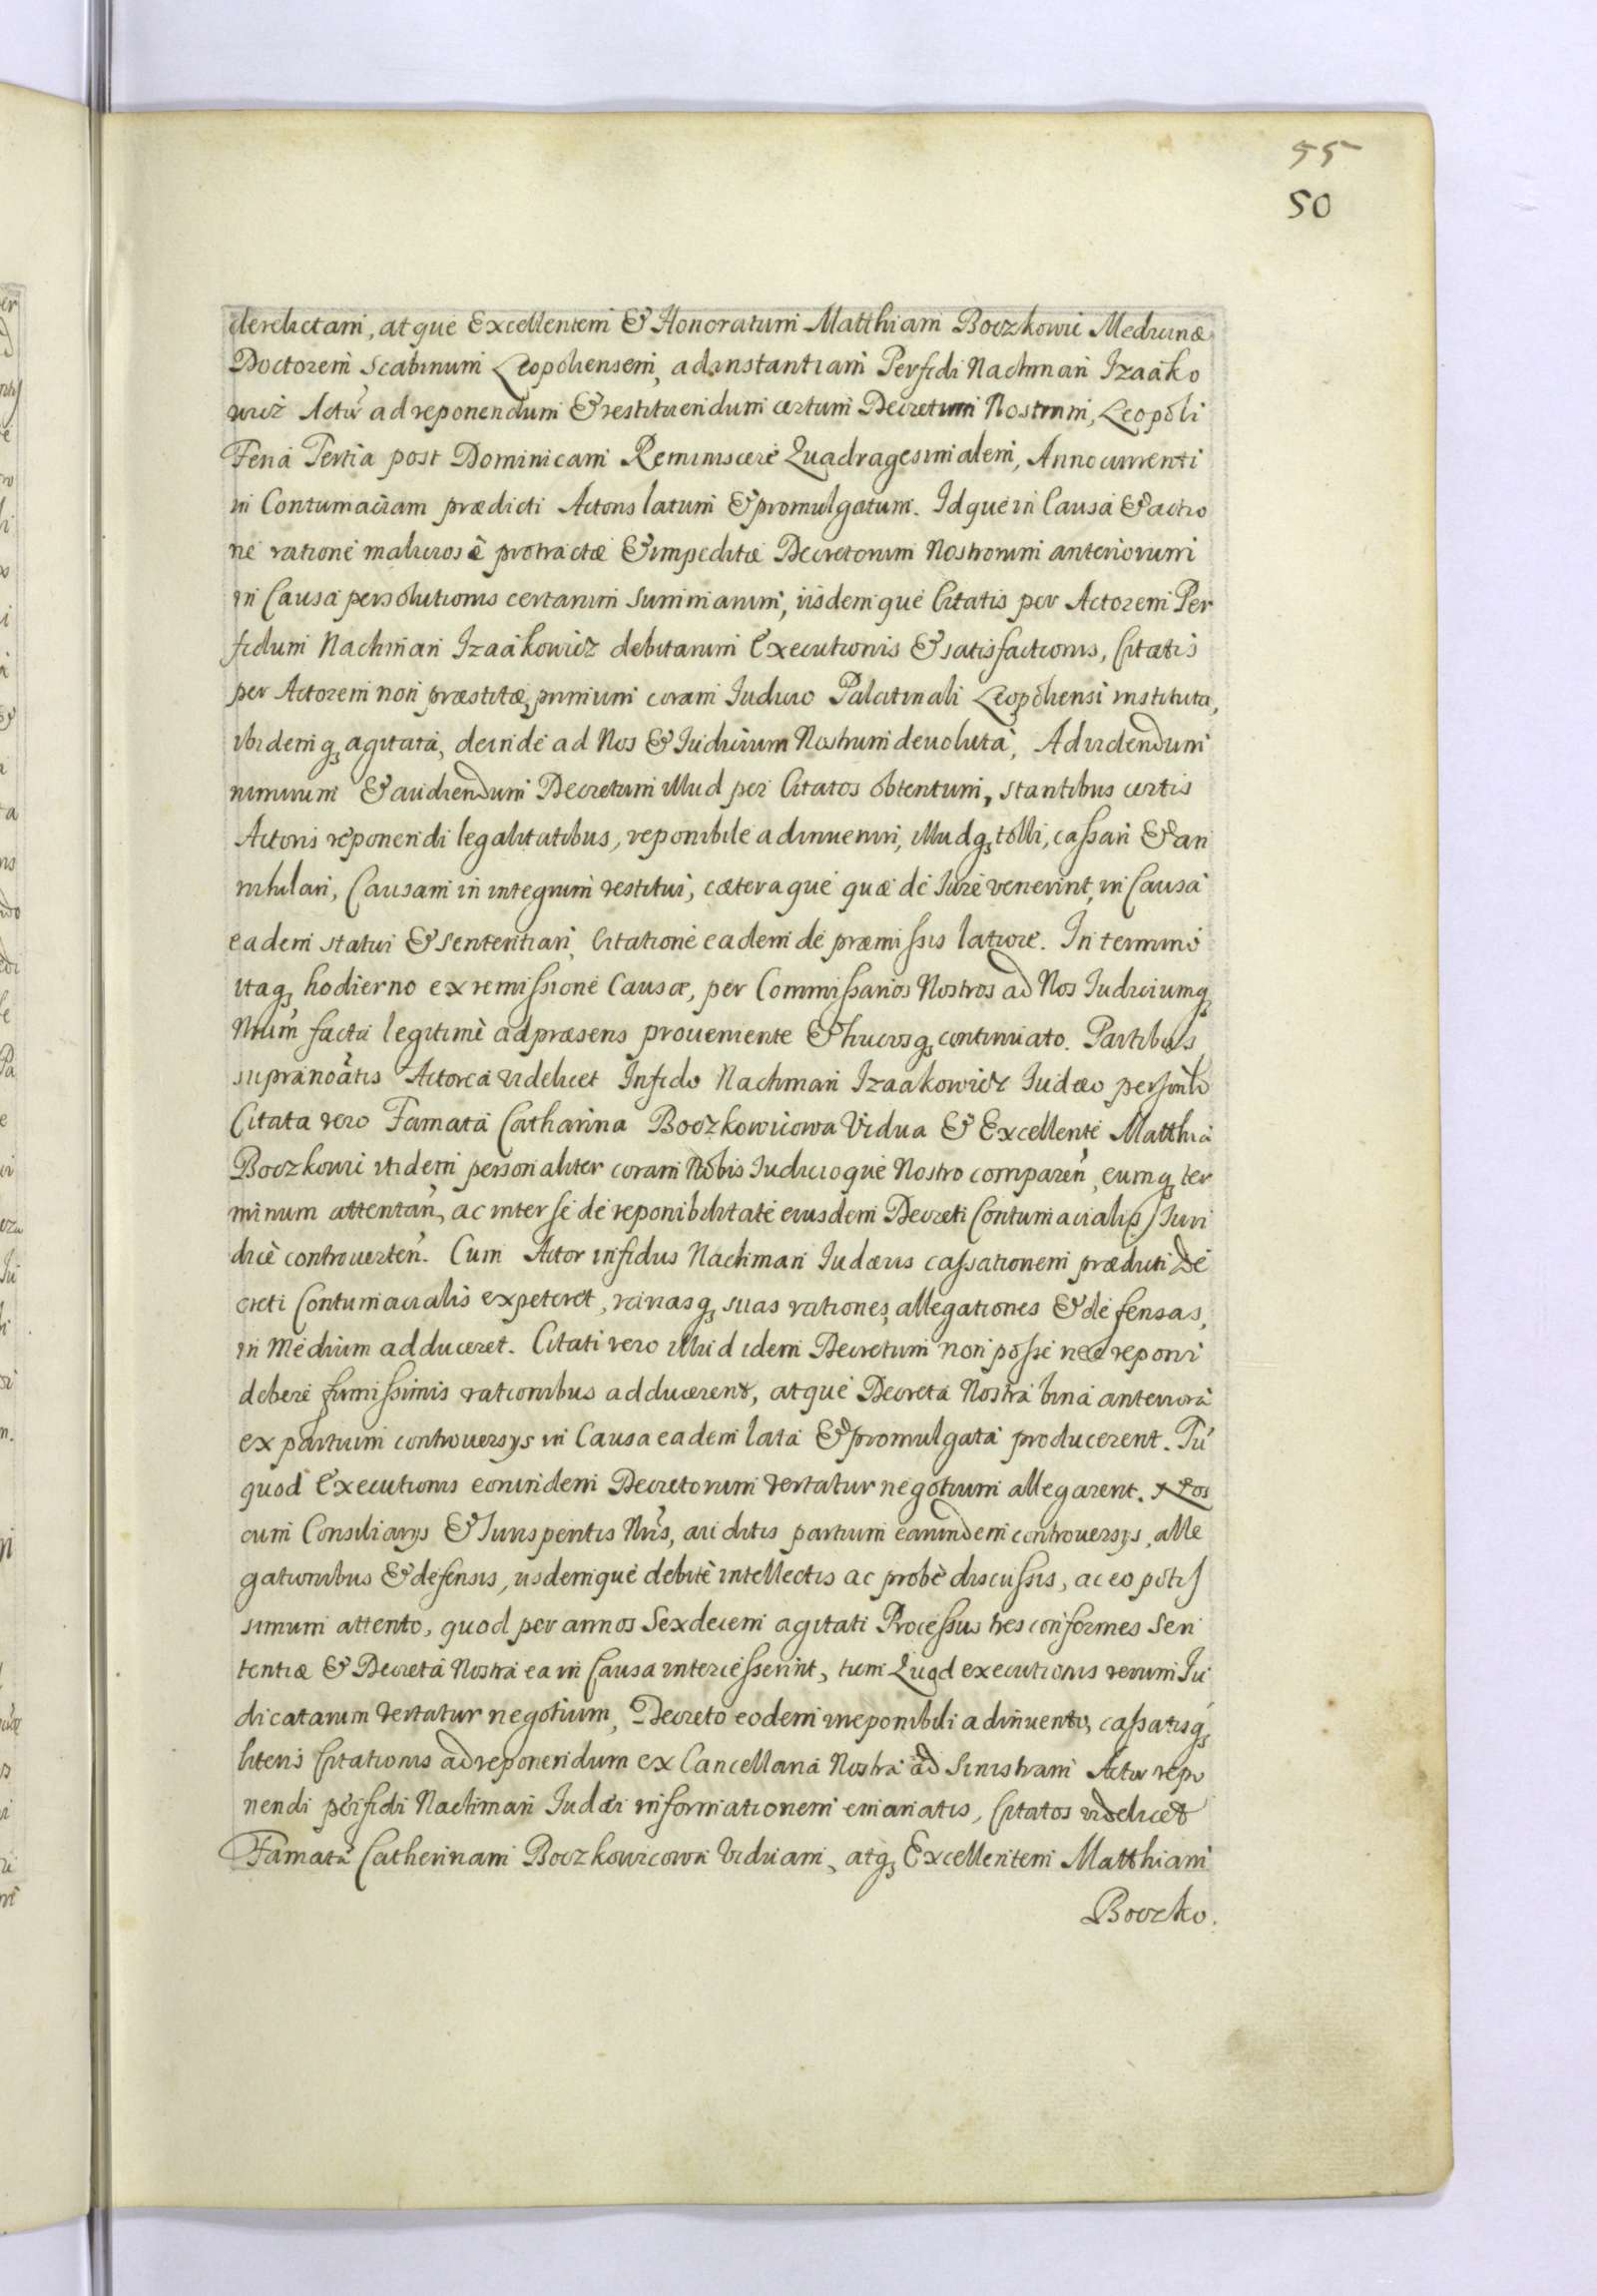 55
50
derelictam, atque Excellentem & Honoratum Matthiam Boczkowic Medicinæ
Doctorem Scabinum Leopoliensem, ad instantiam Perfidi Nachman Izaako
wicz Actŭ ad reponendum & restituendum certum Decretum Nostrum, Leopoli
Feria Tertia post Dominicam Reminiscere Quadragesimalem, Anno currenti
in Contumaciam prædicti Actoris latum & promulgatum. Idque in Causa & actio
ne ratione maliciosè protractæ & impeditæ Decretorum Nostrorum anteriorum
in Causa persolutionis certarum summarum, iisdemque Citatis per Actorem Per
fidum Nachman Izaakowicz debitarum Executionis & satisfactionis, Citatis
per Actorem non præstitæ, primum coram Iudicio Palatinali Leopoliensi instituta,
ibidemq₃ agitata, deinde ad Nos & Iudicium Nostrum devoluta, Ad videndum
nimirum & audiendum Decretum illud per Citatos obtentum, stantibus certis
Actoris reponendi legalitatibus, reponibile adinueniri, illudq₃ tolli, cassari & an
nihilari, Causam in integrum restitui, cæteraque quæ de Iure venerint, in Causa
eadem statui & sententiari, Citatione eadem de præmissis latiore. In termino
itaq₃ hodierno ex remissione Causæ, per Commissarios Nostros ad Nos Iudiciumq₃
Nrum facta legitimè ad præsens proueniente & hucusq₃ continuato. Partibus
supranoãtis Actorea videlicet Infido Nachman Izaakowicz Iudæo personlr
Citata vero Famata Catharina Boczkowicowa Vidua & Excellente Matthia
Boczkowic itidem personaliter coram Nobis Iudicioque Nostro comparen̄, eumq₃ ter
minum attentan̄, ac inter se de reponibilitate eiusdem Decreti Contumacialis Iuri
dicè controverten̄. Cum Actor infidus Nachman Iudæus cassationem prædicti De
creti Contumacialis expeteret, variasq₃ suas rationes, allegationes & defensas,
in medium adduceret. Citati vero illud idem Decretum non posse nec reponi
debere firmissimis rationibus adducerent, atque Decreta Nostra bina anteriora
ex partium controversys in Causa eadem lata & promulgata producerent. Tũ
quod Executionis eorundem Decretorum vertatur negotium allegarent. Nos
cum Consiliarys & Iurisperitis Nrĩs, auditis partium earundem controversys, alle
gationibus & defensis, iisdemque debitè intellectis ac probè discussis, ac eo potis
simum attento, quod per annos Sexdecem agitati Processus tres conformes Sen
tentiæ & Decreta Nostra ea in Causa intercesserint, tum Quod executionis rerum Iu
dicatarum vertatur negotium, Decreto eodem irreponibili adinuento, cassatisq₃
literis Citationis ad reponendum ex Cancellaria Nostra ad Sinistram Actŭ repo
nendi perfidi Nachman Iudæi informationem emanatis, Citatos videlicet
Famatã Catherinam Boczkowicowa Viduam, atq₃ Excellentem Matthiam
Boczko.